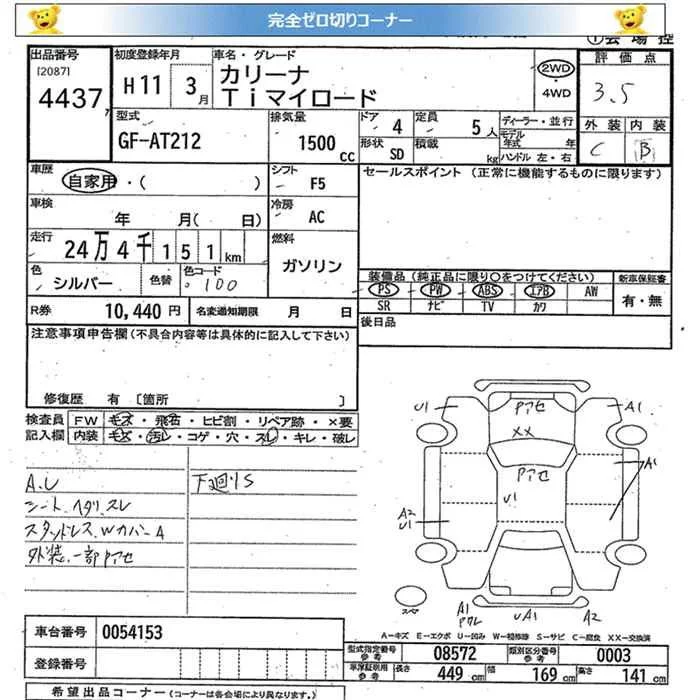 完全ゼロ切りコーナー
出品番号 初度登録年月 車名・グレード 評価点
[2087] 4437 H11 3月 カリーナ 2WD・4WD 3.5
Tiマイロード
型式 排気量 ドア 4 定員 5人 ディーラー・並行 外装 内装
GF-AT212 1500cc 形状 SD 積載 kg モデル年式 年 C B
ハンドル 左・右
車歴 シフト セールスポイント (正常に機能するものに限ります)
自家用・( ) F5
車検 年 月( 日) 冷房 AC
走行 24万4千151km 燃料 ガソリン
色 シルバー 色替 色コード 100
装備品(純正品に限り○をつけてください) 新車保証書
PS PW ABS エアB AW 有・無
SR ナビ TV カワ
R券 10,440円 名変通知期限 月 日 後日品
注意事項申告欄(不具合内容等は具体的に記入して下さい)
修復歴 有 [箇所 ]
検査員 FW キズ・飛石・ヒビ割・リペア跡・×要
記入欄 内装 キズ・汚レ・コゲ・穴・スレ・キレ・破レ
A.U 下廻りS
シートヘタリ.スレ
スタッドレス.Wカバー4
外装.一部Pアセ
U1 Pアセ A1
XX
Pアセ A1
U1
A2
U1
スペ A1 UA1 A2
A-キズ E-エクボ U-凹み W-補修跡 S-サビ C-腐食 XX-交換済
車台番号 0054153 型式指定番号参考 08572 類別区分番号参考 0003
登録番号 車庫証明用参考 長さ 449cm 幅 169cm 高さ 141cm
希望出品コーナー(コーナーは各会場により異なります。)